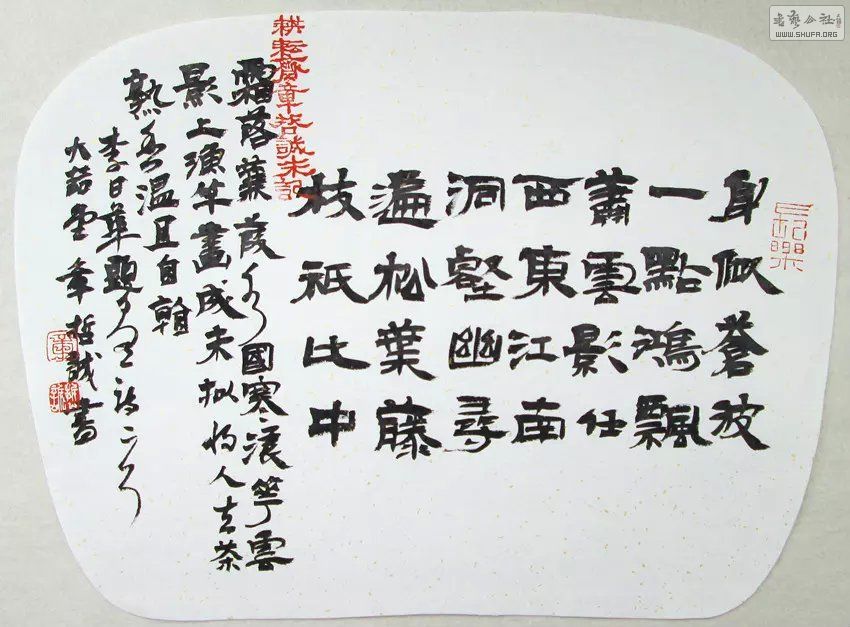 書藝公社
WWW.SHUFA.ORG
長樂
身似蒼波
一點鴻飄
蕭雲影任
西東江南
洞壑幽尋
遍松葉藤
枝祇此中
耕耘齋章喆誠朱記
霜落蒹葭水國寒浪華雲
影上漁竿畫成未擬將人去茶
熟香溫且自看
李日華題畫詩二首
大喆堂章哲誠書
章